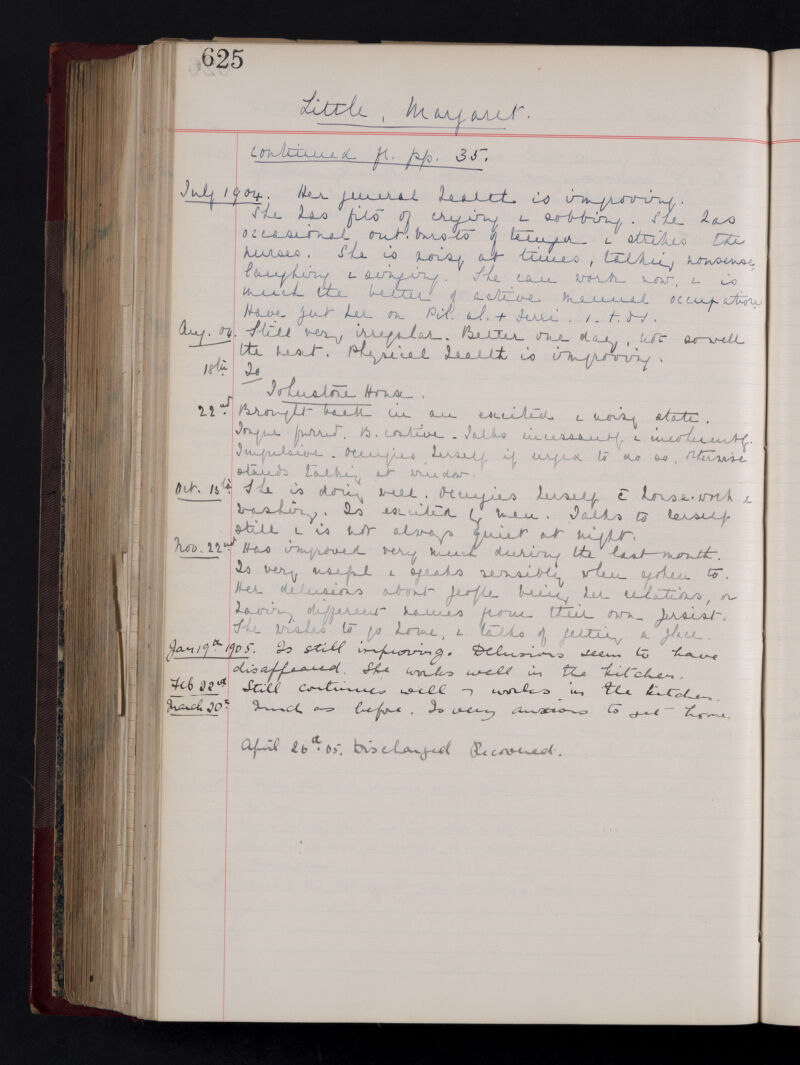 625
Little, Margaret.
continued fr. pp. 35.
July 1904. Her general health is improving.
She has fits of crying & sobbing. She has
occasional out-bursts of temper & strikes the
nurses. She is noisy at times, talking nonsense,
laughing & singing. She can work now, & is
much the better of active manual occupation.
Have put her on Pil. al. & Ferri. 1. t.d.s.
Aug. 04. Still very irregular. Better one day, not so well
the next. Physical health is improving.
18th To
Johnstone House.
22nd Brought back in an excited & noisy state.
Tongue furred. B. costive. Talks incessantly & incoherently.
Impulsive. Occupies herself if urged to do so, otherwise
stands talking at window.
Oct. 18th She is doing well. Occupies herself c̄ house-work &
washing. Is excited by men. Talks to herself
still & is not always quiet at night.
Nov. 22nd Has improved very much during the last month.
Is very useful & speaks sensibly when spoken to.
Her delusions about people being her relations, or
having different names from their own persist.
She wishes to go home, & talks of getting a place.
Jan 19th 1905. Is still improving. Delusions seem to have
disappeared. She works well in the kitchen.
Feb 22nd Still continues well & works in the kitchen.
March 20th Much as before. Is very anxious to get home.
April 26th 05. Discharged Recovered.